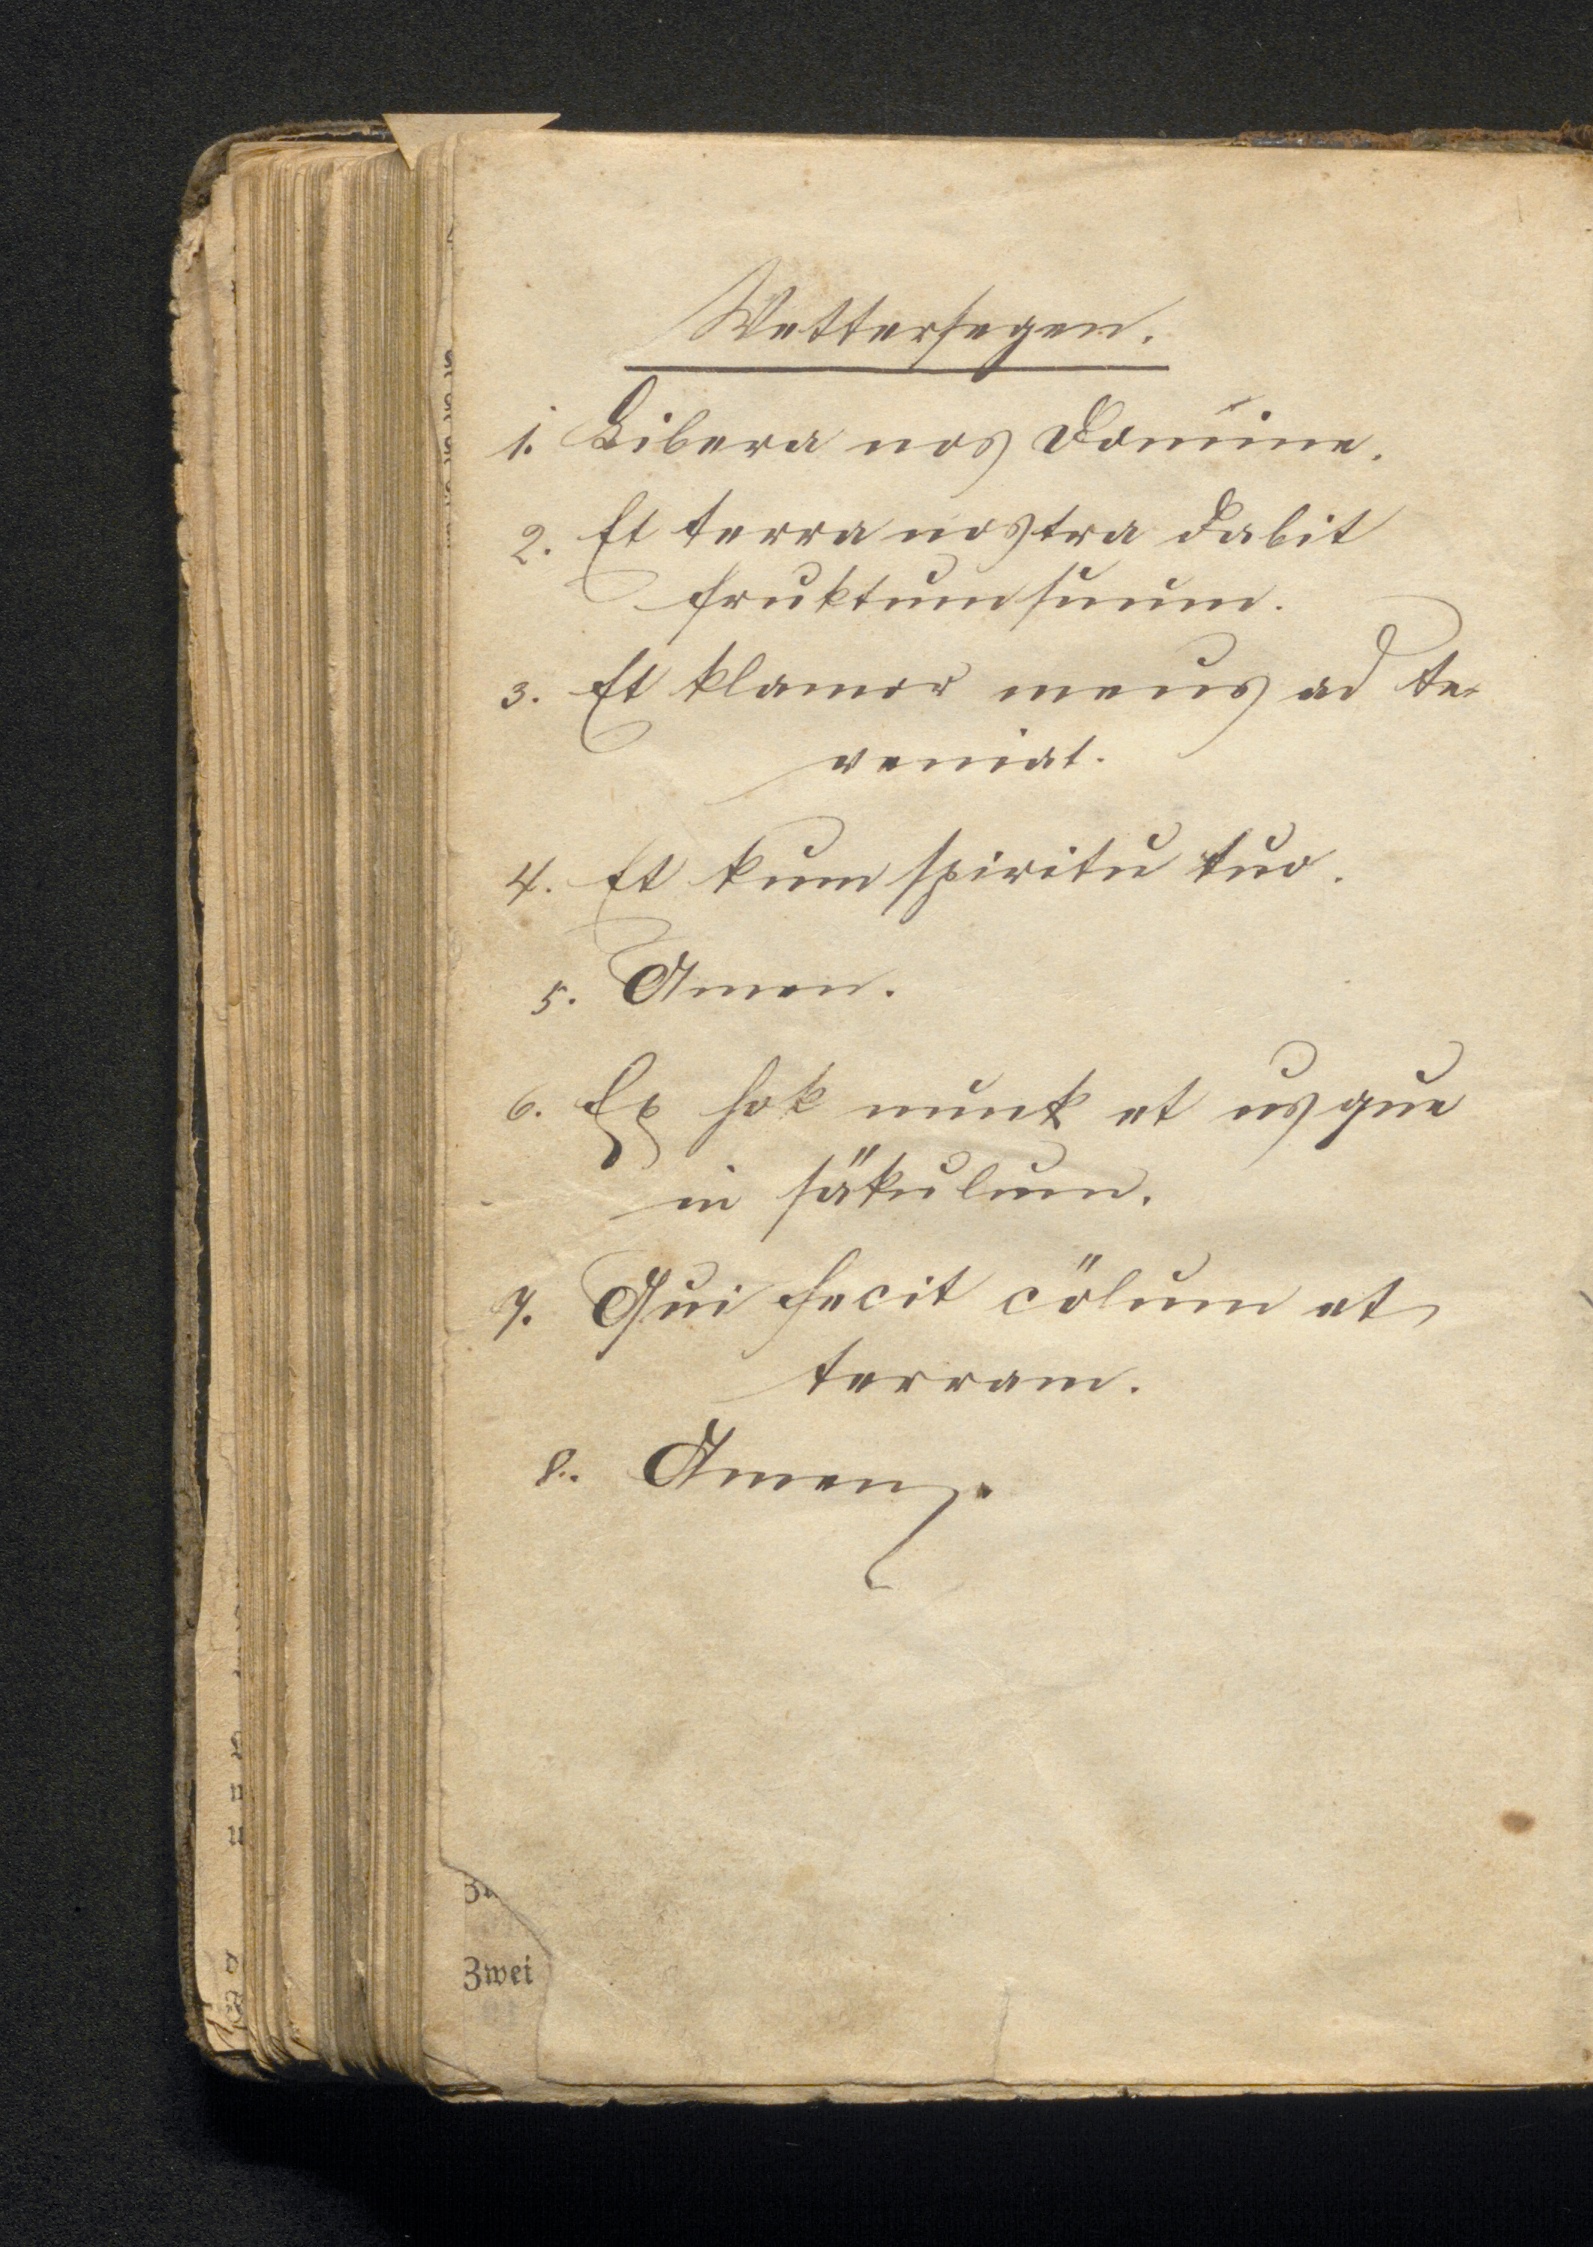 Wettersegen.
1. Libera nos Domine.
2. Et terra nostra dabit
fruktum suum.
3. Et klamor meus ad te
veniat.
4. Et kum spiritu tuo.
5. Amen.
6. Ex hok nunk et usque
in säkulum.
7. Qui fecit cölum et
terram.
8. Amen.
Zwei